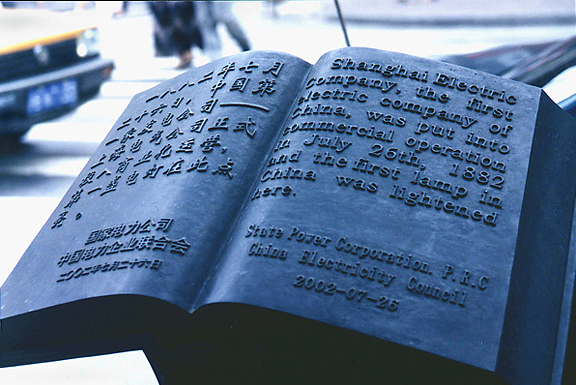 一八八二年七月
二十六日，中国第
一家发电公司——
上海电光公司正式
投入商业化运营，
第一盏电灯在此点
亮。
国家电力公司
中国电力企业联合会
二〇〇二年七月二十六日
Shanghai Electric
Company, the first
electric company of
China, was put into
commercial operation
in July 26th, 1882
and the first lamp in
China was lightened
here.
State Power Corporation. P.R.C
China Electricity Council
2002-07-26